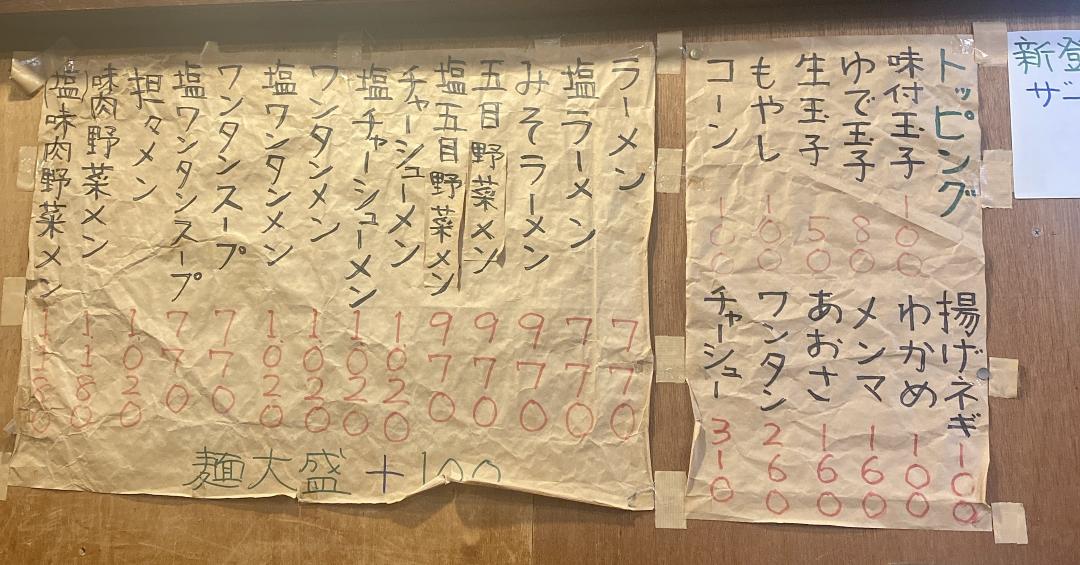 新登
ザー
トッピング
味付玉子 100
ゆで玉子 80
生玉子 50
もやし 100
コーン 100
揚げネギ 100
わかめ 100
メンマ 160
あおさ 160
ワンタン 260
チャーシュー 310
ラーメン 770
塩ラーメン 770
みそラーメン 970
五目野菜メン 970
塩五目野菜メン 970
チャーシューメン 1020
塩チャーシューメン 1020
ワンタンメン 1020
塩ワンタンメン 1020
ワンタンスープ 770
塩ワンタンスープ 770
担々メン 1020
味肉野菜メン 1180
(塩)味肉野菜メン 1180
麺大盛+100